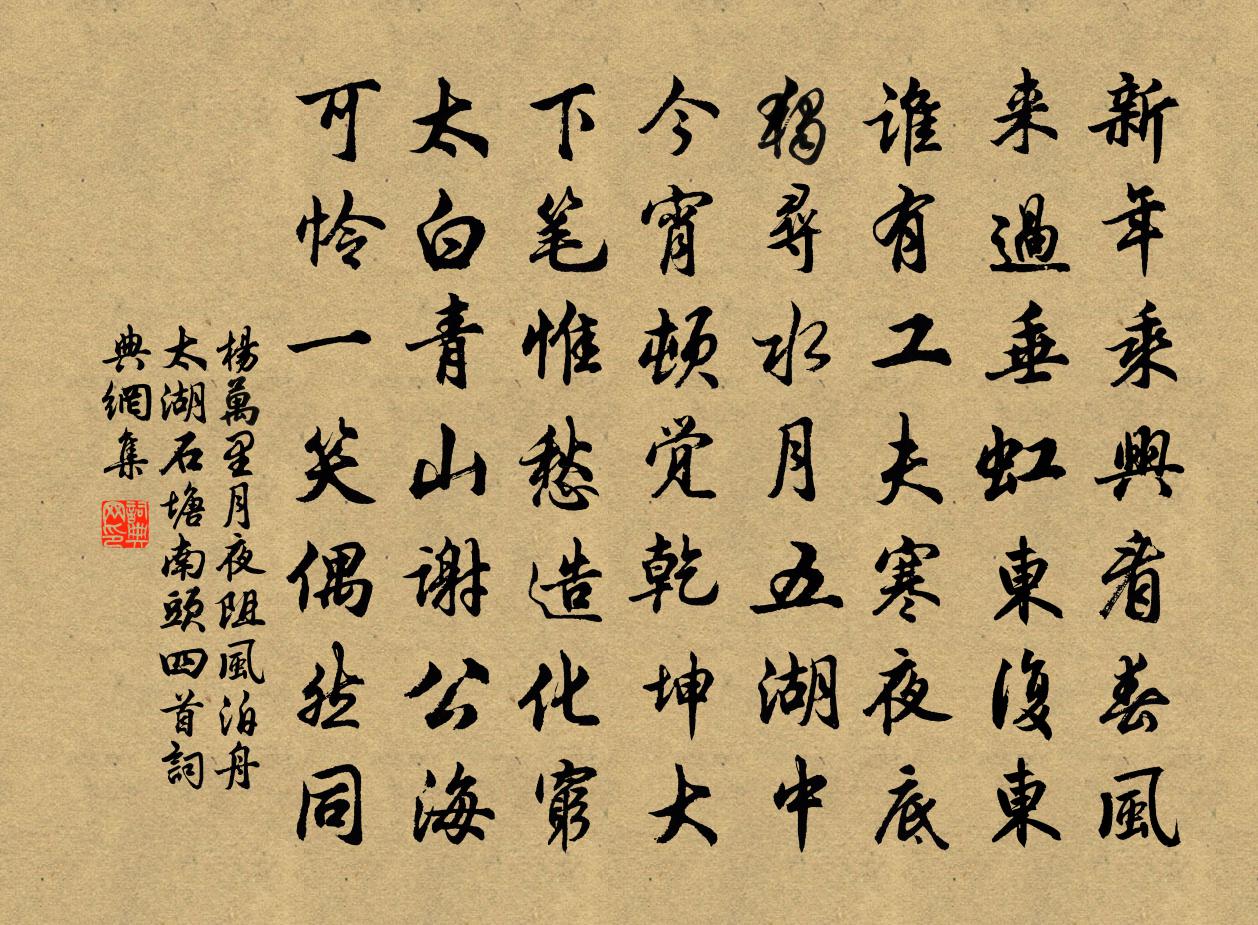 新年乘興看春風
来過垂虹東復東
誰有工夫寒夜底
獨尋水月五湖中
今宵頓覚乾坤大
下笔惟愁造化窮
太白青山謝公海
可怜一笑偶然同
楊萬里月夜阻風泊舟
太湖石塘南頭四首詞
典網集
詞典
网印